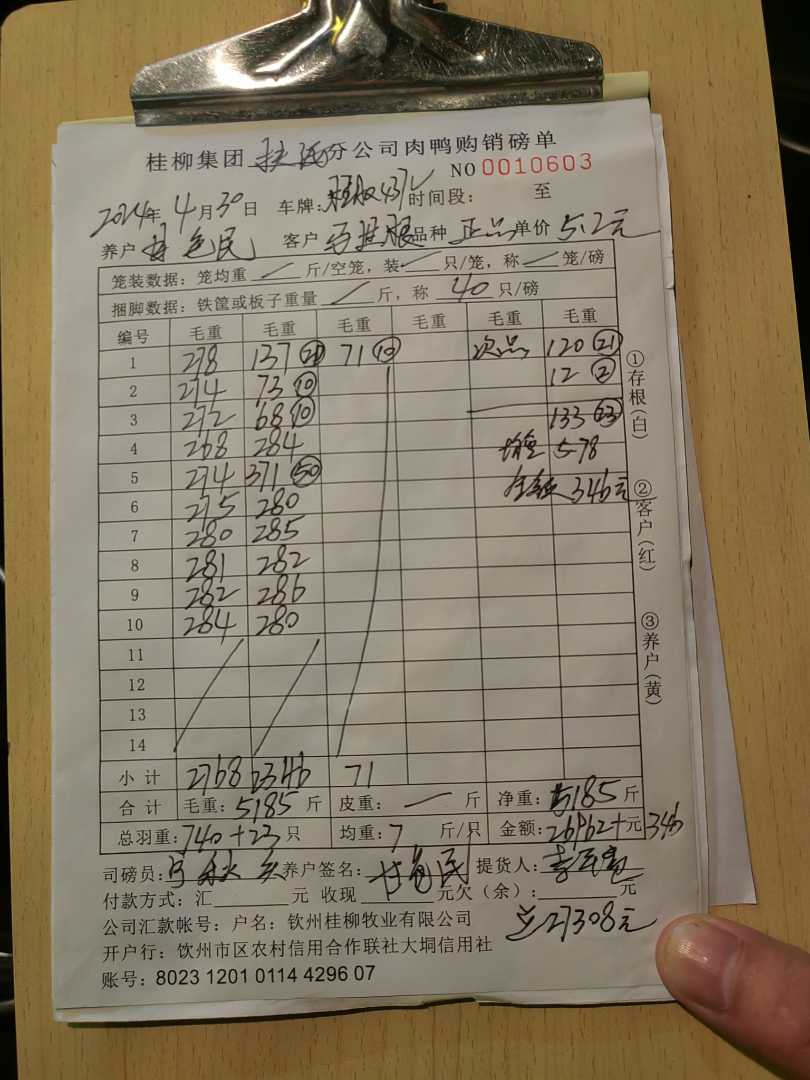 桂柳集团 分公司肉鸭购销磅单
NO 0010603
2024年 4月30日 车牌: 时间段: 至
养户 色民 客户 品种 正品 单价 5.2元
笼装数据：笼均重 / 斤/空笼，装 / 只/笼，称 / 笼/磅
捆脚数据：铁筐或板子重量 / 斤，称 40 只/磅
编号 毛重 毛重 毛重 毛重 毛重 毛重
1 278 137 (21) 71 (10) 次品 120 (21)
2 274 73 (10) 12 (2)
3 272 68 (10) 133 (23)
4 268 284 均重 5.78
5 274 371 (50) 金额 346元
6 275 280
7 280 285
8 281 282
9 282 286
10 284 280
11
12
13
14
小计 2768 2346 71
合计 毛重: 5185 斤 皮重: — 斤 净重: 5185 斤
总羽重: 740+23 只 均重: 7 斤/只 金额: 26962+元 346
司磅员: 养户签名: 色民 提货人:
付款方式: 汇 元 收现 元欠（余）: 元
公司汇款帐号：户名：钦州桂柳牧业有限公司 总27308元
开户行：钦州市区农村信用合作联社大垌信用社
账号：8023 1201 0114 4296 07
①存根(白)
②客户(红)
③养户(黄)